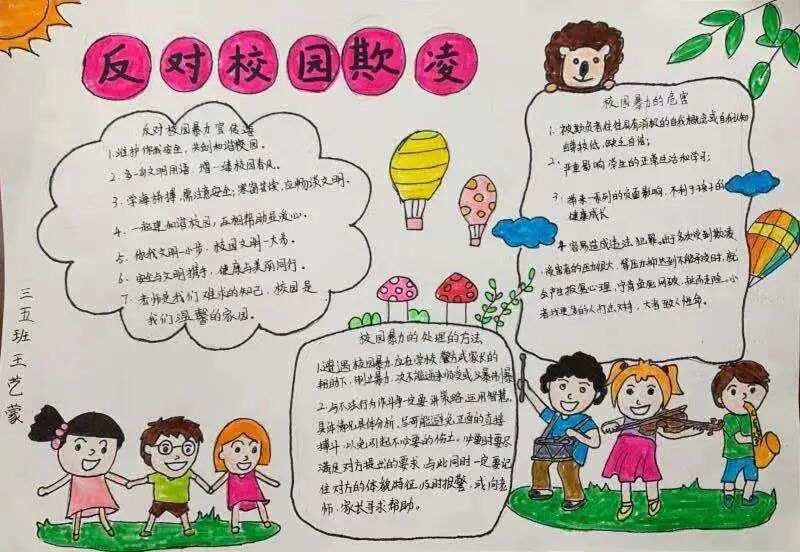 反对校园欺凌
反对校园暴力宣传语
1、维护你我安全，共创和谐校园。
2、多一句文明用语，增一缕校园春风。
3、学海拼搏，需注意安全；寒窗苦读，应畅谈文明。
4、一起建和谐校园，互相帮助显爱心。
5、你我文明一小步，校园文明一大步。
6、安全与文明携手，健康与美丽同行。
7、老师是我们难求的知己，校园是
我们温馨的家园。
校园暴力的危害
1、被欺负者往往具有消极的自我概念或自我认知
自尊较低，缺乏自信；
2、严重影响学生的正常生活和学习；
3、带来一系列的负面影响，不利于孩子的
健康成长
4、容易造成违法犯罪，由于多次受到欺凌
受害者的压力很大，等压力抑
到不能承受时，就
会产生报复心理，宁肯鱼死网破，铤而走险，小
者找更多的人打击对方，大者致人性命。
校园暴力的处理的方法
1、遭遇校园暴力应在学校、警方或家长的
帮助下，制止暴力，决不能逆来顺受或以暴制暴
2、与不法行为作斗争一定要讲策略，运用智慧，
具体情况具体分析，尽可能避免正面的直接
搏斗，以免引起不必要的伤亡。必要时要尽
满足对方提出的要求，与此同时一定要记
住对方的体貌特征，及时报警，或向老
师、家长寻求帮助。
三五班王艺蒙